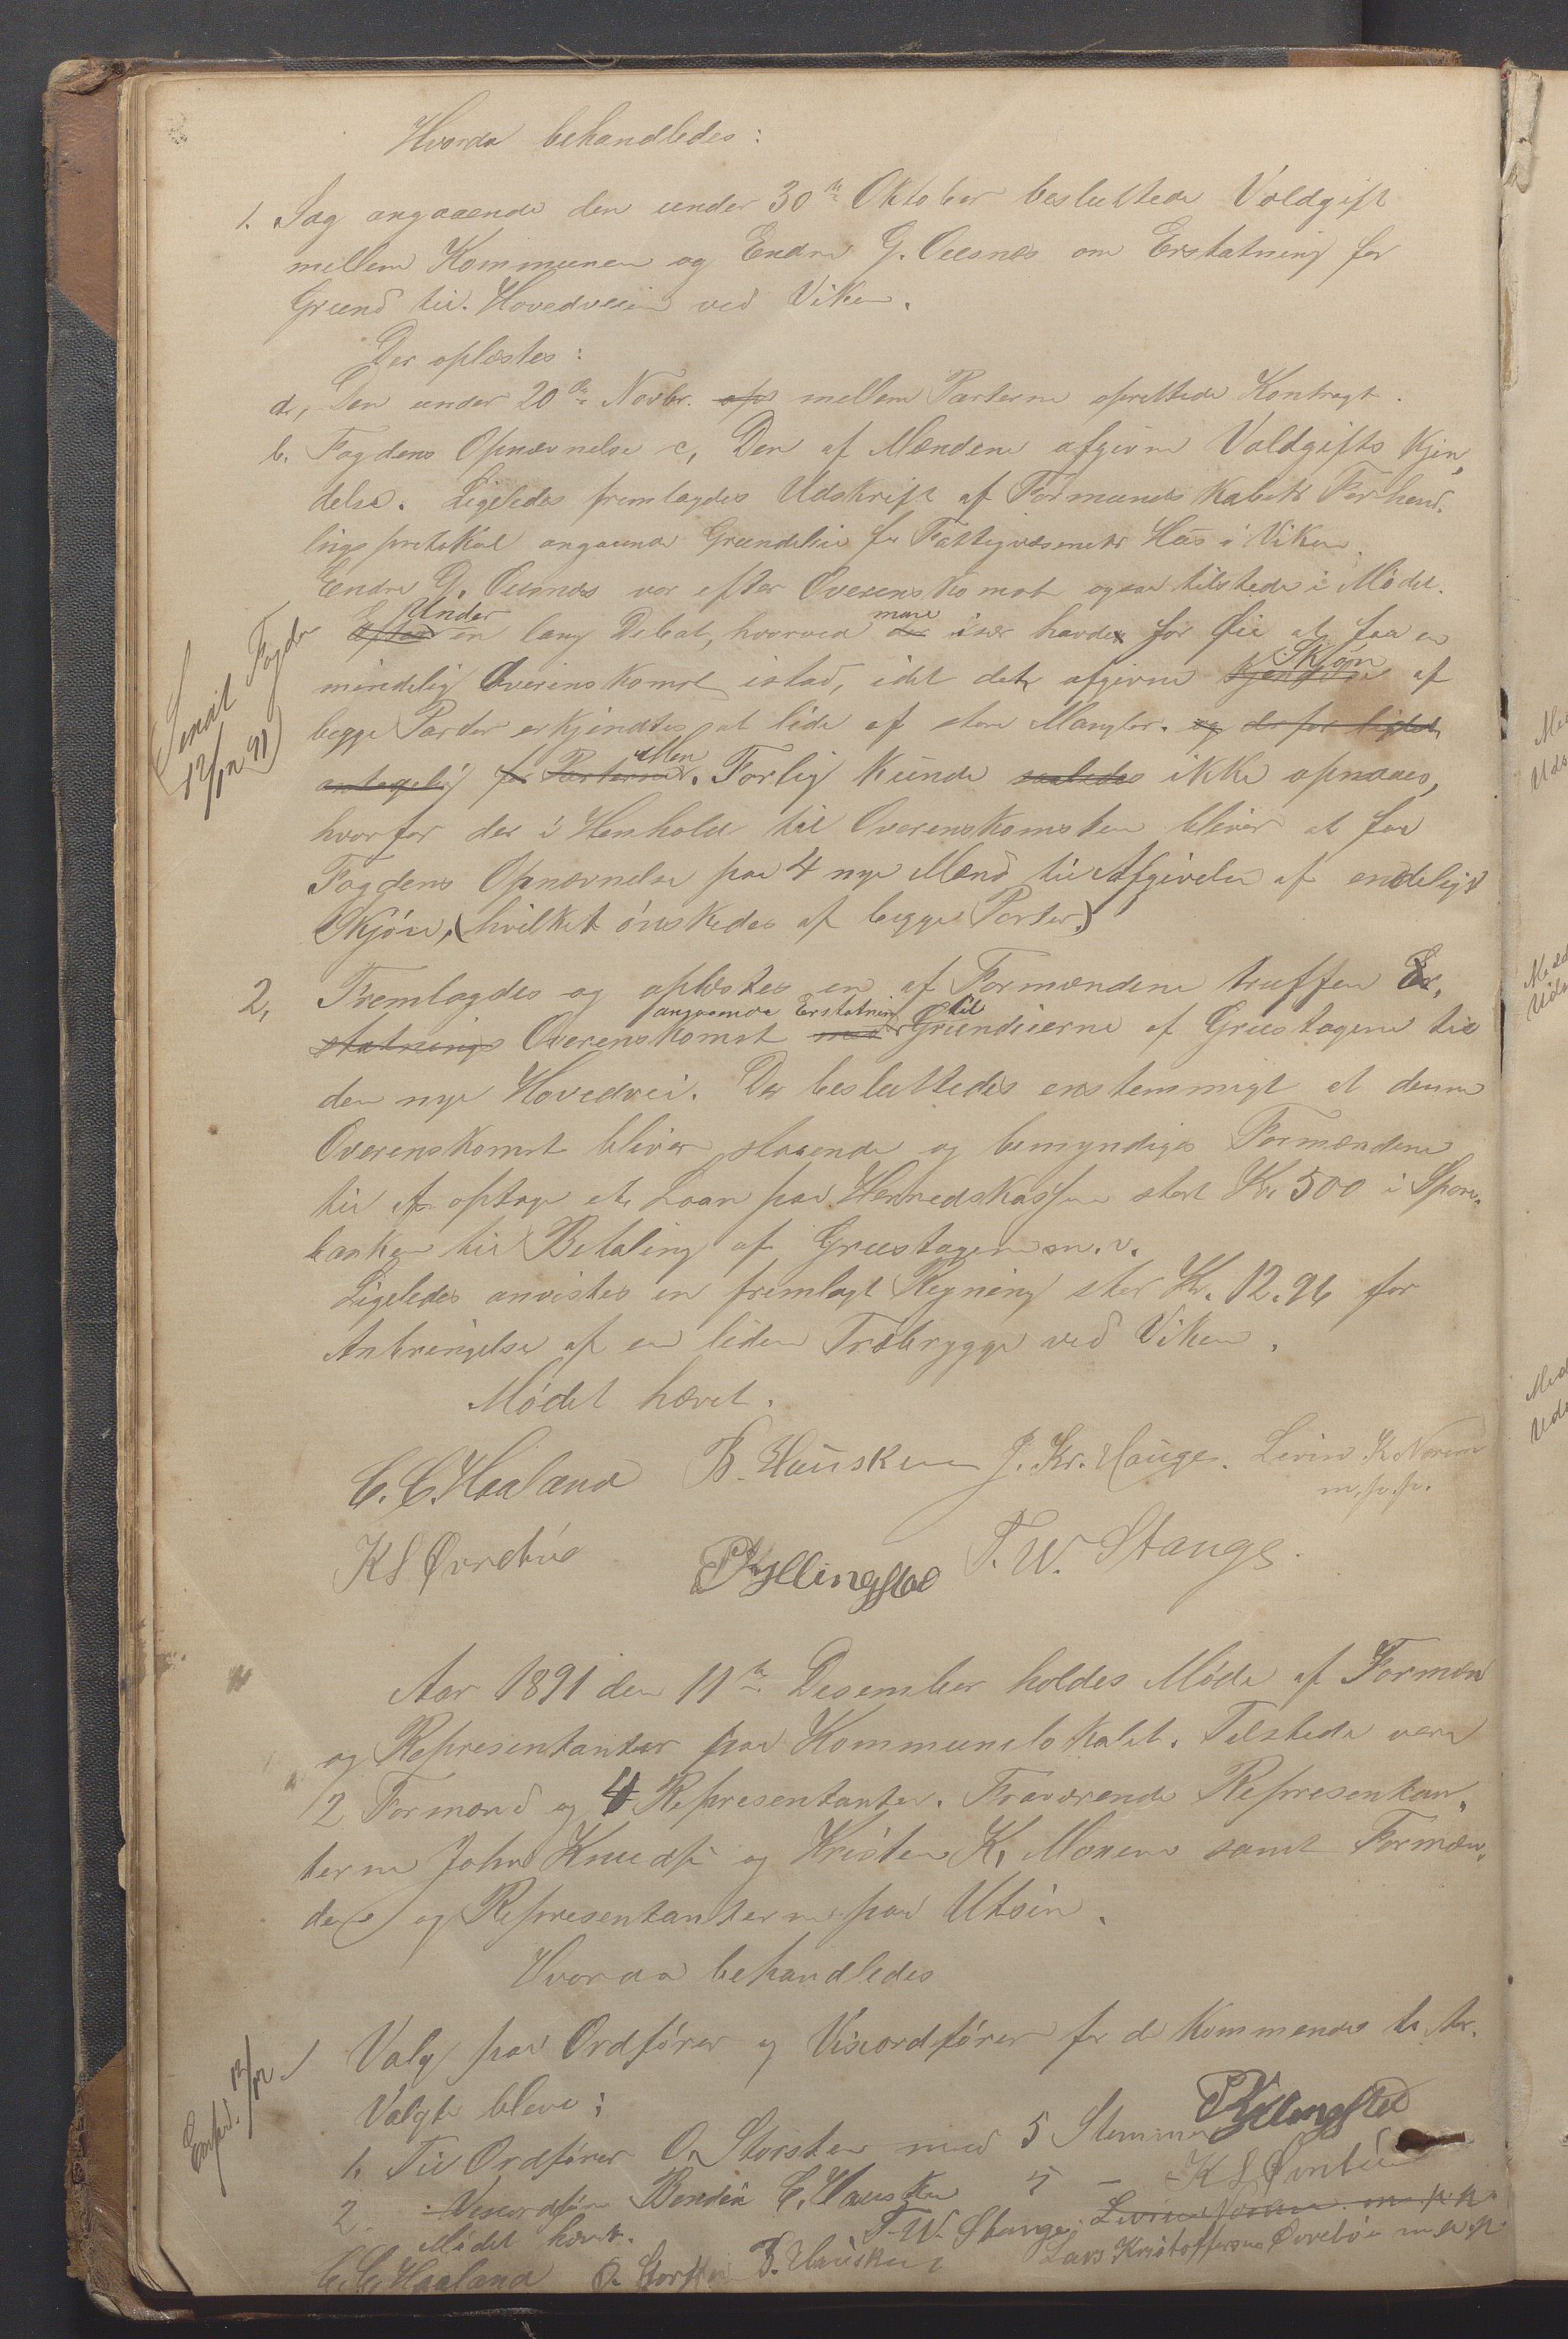 Hvorda behandledes:
1. Sag angaaende den under 30te Oktober besluttede Voldgift
mellem Kommunen og Endre G. Aasnes om Erstatning for
Grund til Hovedveien ved Viken.
Der oplæstes:
a, Den under 20de Novbr. mellem Parterne oprettede Kontragt.
b. Fogdens Opnævnelse c, Den af Mændene afgivne Voldgifts Kjen,
delse. Ligeledes fremlagdes Udskrift af Formandskabets Forhand,
lings protokol angaaende Grundeleie for Fattigvæsenets Hus i Viken.
Endre G. Aasnes var efter Overenskomst ogsaa tilstede i Mødet.
Under en lang Debat, hvorved man især havde for Øie at faa en
mindelig Overenskomst istad, idet det afgivne Skjøn af
begge Parter erkjendtes at lide af store Mangler. og derfor lidet
antagelig for Parterne. Men Forlig kunde saaledes ikke opnaaes,
hvorfor der i Henhold til Overenskomsten bliver at faa
Fogdens Opnævnelse paa 4 nye Mænd til Afgivelse af endeligt
Skjøn, (hvilket ønskedes af begge Parter.)
(Sendt Fogden
12/12 91)
2, Fremlagdes og oplæstes en af Formændene truffen Er,
statnings Overenskomst angaaende Erstatning til Grundeierne af Grustagene til
den nye Hovedvei. Der besluttedes enstemmigt at denne
Overenskomst bliver staaende og bemyndiges Formændene
til at optage et Laan paa Herredskassen stort Kr. 500 i Spare,
banken til Betaling af Grustagene m. v.
Ligeledes anvistes en fremlagt Regning stor Kr. 12.96 for
Anbringelse af en liden Træbrygge ved Viken.
Mødet hævet.
C. C. Haaland B. Hausken J. Kr. Hauge. Livin K. Norem
m. p. p.
K S Øvrebø P Kyllingstad T. W. Stange.
Aar 1891 den 11te Desember holdes Møde af Formæn
og Representanter paa Kommunelokalet. Tilstede være
2 Formænd og 4 Representanter. Fraværende Representan,
terne John Knudsen og Kristen K. Moxenes samt Formæn,
dene og Representanterne paa Utsire.
Hvorda behandledes
1 Valg paa Ordfører og Viseordfører for de kommende to Aar.
Valgte bleve;
1. Til Ordfører O. Storsten med 5 Stemmer P Kyllingstad
2. Viseordfører Bendix C. Hausken 5 - K S Øvrebø
Mødet hævet. T. W. Stange; Livin Norem m p p
C. C. Haaland O. Storsten B. Hausken Lars Kristoffersen Øvrebø m p p